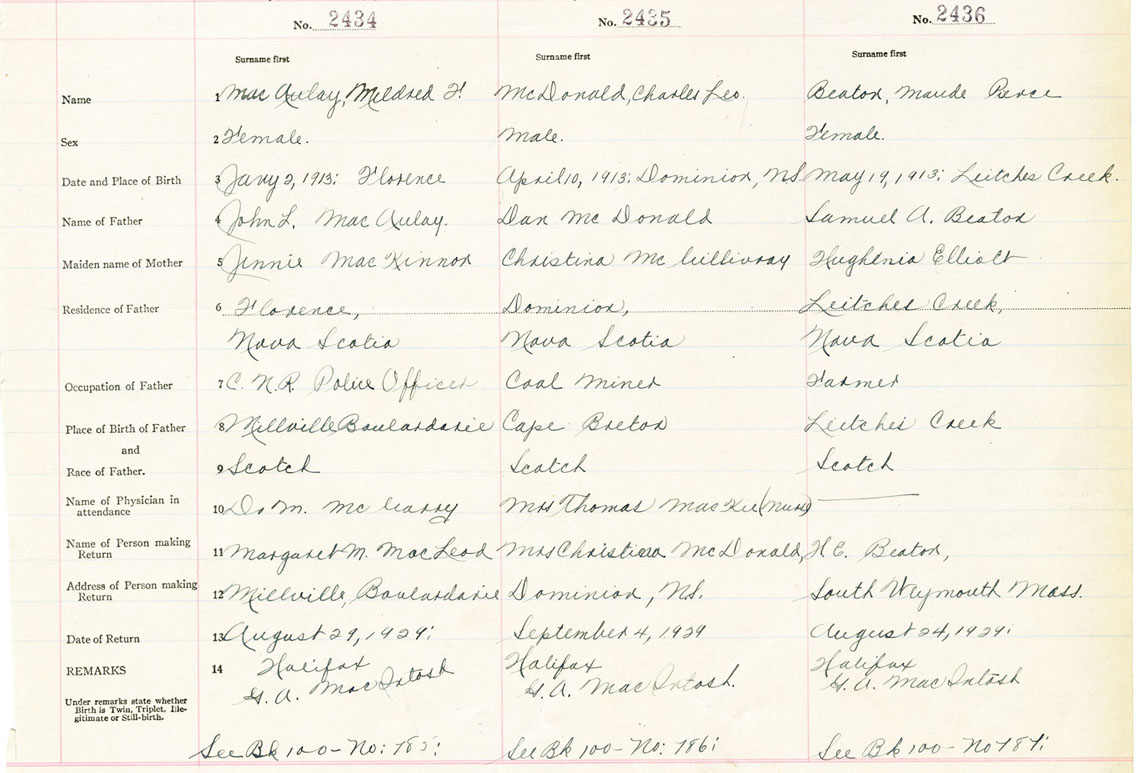 No. 2434 No. 2435 No. 2436
Surname first Surname first Surname first
Name 1 Mac Aulay, Mildred F. McDonald, Charles Leo. Beaton, Maude Pierce
Sex 2 Female. Male. Female.
Date and Place of Birth 3 Jany 2, 1913: Florence April 10, 1913: Dominion, NS May 19, 1913: Leitches Creek.
Name of Father 4 John L. Mac Aulay. Dan Mc Donald Samuel A. Beaton
Maiden name of Mother 5 Jennie Mac Kinnon Christina Mc Gillivray Hughenia Elliott
Residence of Father 6 Florence, Dominion, Leitches Creek,
Nova Scotia Nova Scotia Nova Scotia
Occupation of Father 7 C. N.R. Police Officer Coal Miner Farmer
Place of Birth of Father 8 Millville Boulardarie Cape Breton Leitches Creek
and
Race of Father. 9 Scotch Scotch Scotch
Name of Physician in
attendance 10 Dr M. Mc Garry Mrs Thomas (Nurse)
Name of Person making
Return 11 Margaret M. MacLeod Mrs Christina McDonald, H E. Beaton,
Address of Person making
Return 12 Millville, Boulardarie Dominion, NS. South Weymouth Mass.
Date of Return 13 August 29, 1929: September 4, 1929 August 24, 1929:
REMARKS 14 Halifax Halifax Halifax
G. A. MacIntosh G. A. MacIntosh. G. A. MacIntosh
Under remarks state whether
Birth is Twin, Triplet, Ille-
gitimate or Still-birth.
See Bk 100 - No: 785: See Bk 100 - No: 786: See Bk 100 - No 787: